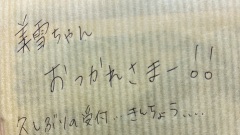 美雪ちゃん
おつかれさまー!!
久しぶりの受付…きんちょう……